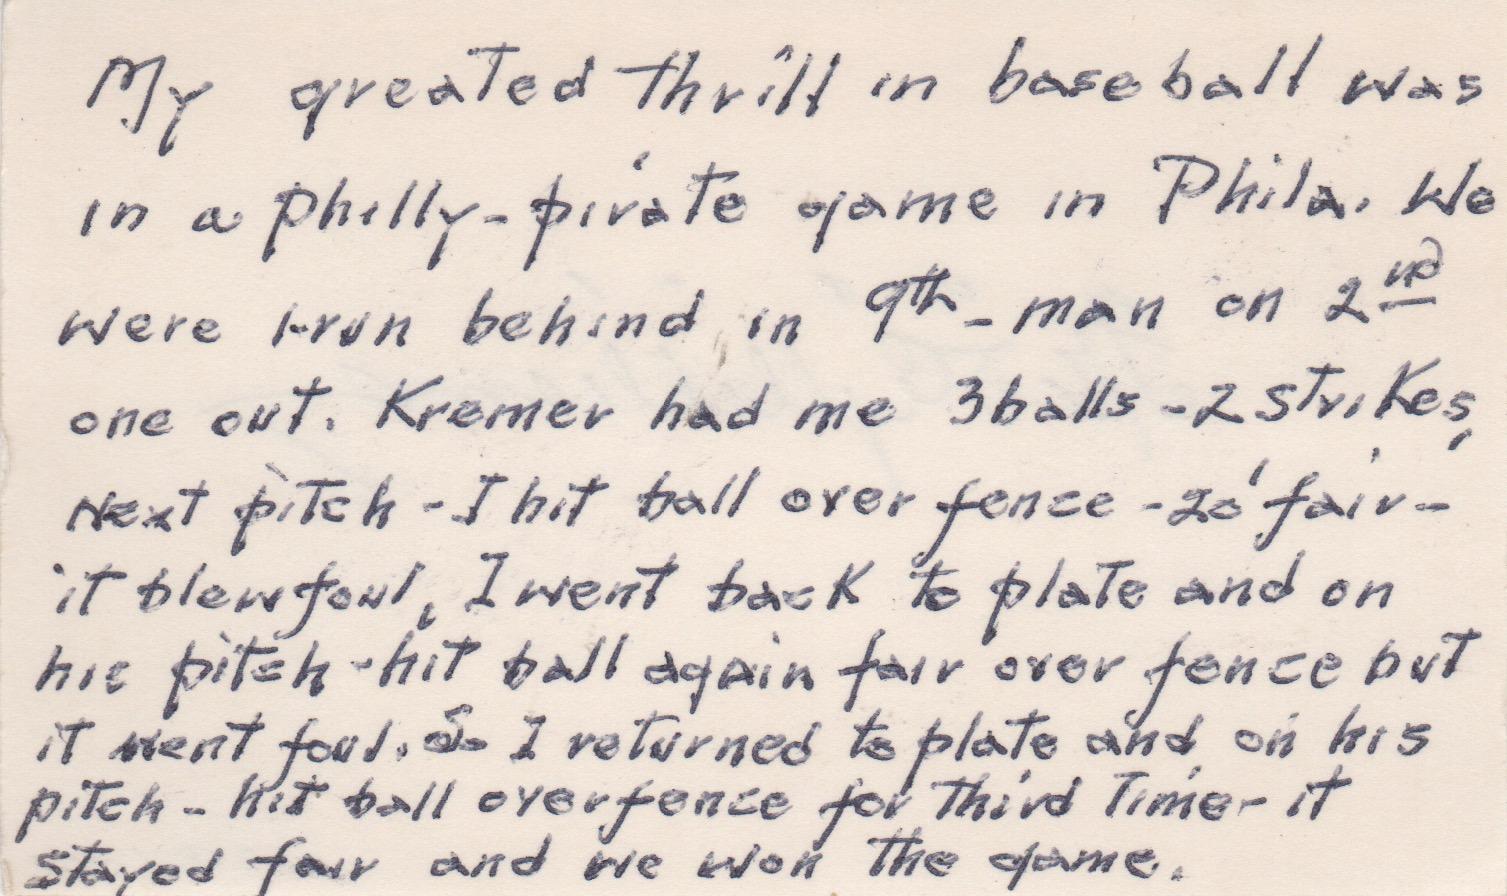 My greated thrill in baseball was
in a philly-pirate game in Phila. We
were 1-run behind in 9th - man on 2nd
one out. Kremer had me 3 balls - 2 strikes,
Next pitch - I hit ball over fence - 20' fair -
it blew foul, I went back to plate and on
his pitch - hit ball again fair over fence but
it went foul. So I returned to plate and on his
pitch - hit ball over fence for third time - it
stayed fair and we won the game.